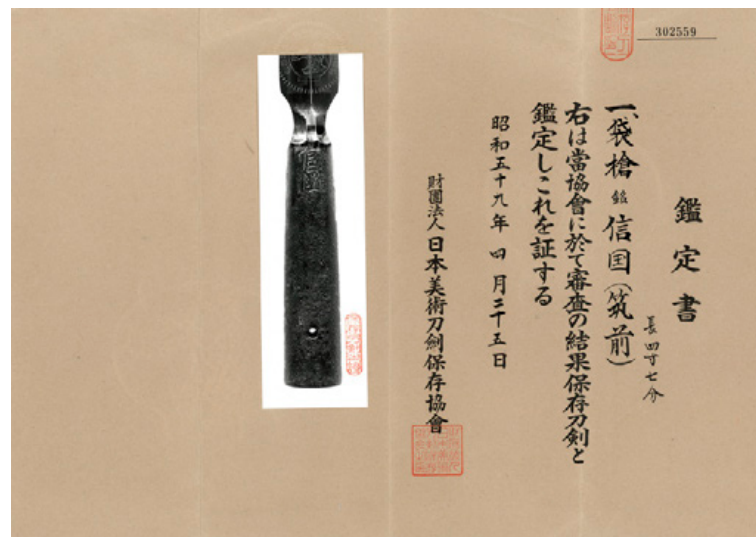 302559
鑑定書
一、袋槍 銘 信国(筑前)
長四寸七分
右は當協會に於て審査の結果保存刀剣と
鑑定しこれを証する
昭和五十九年 四月二十五日
財團法人 日本美術刀劍保存協會
信国